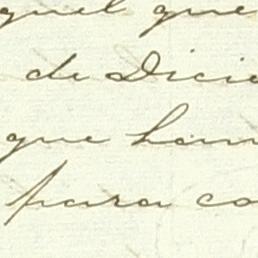 quel que
de Dicie
que han
para co